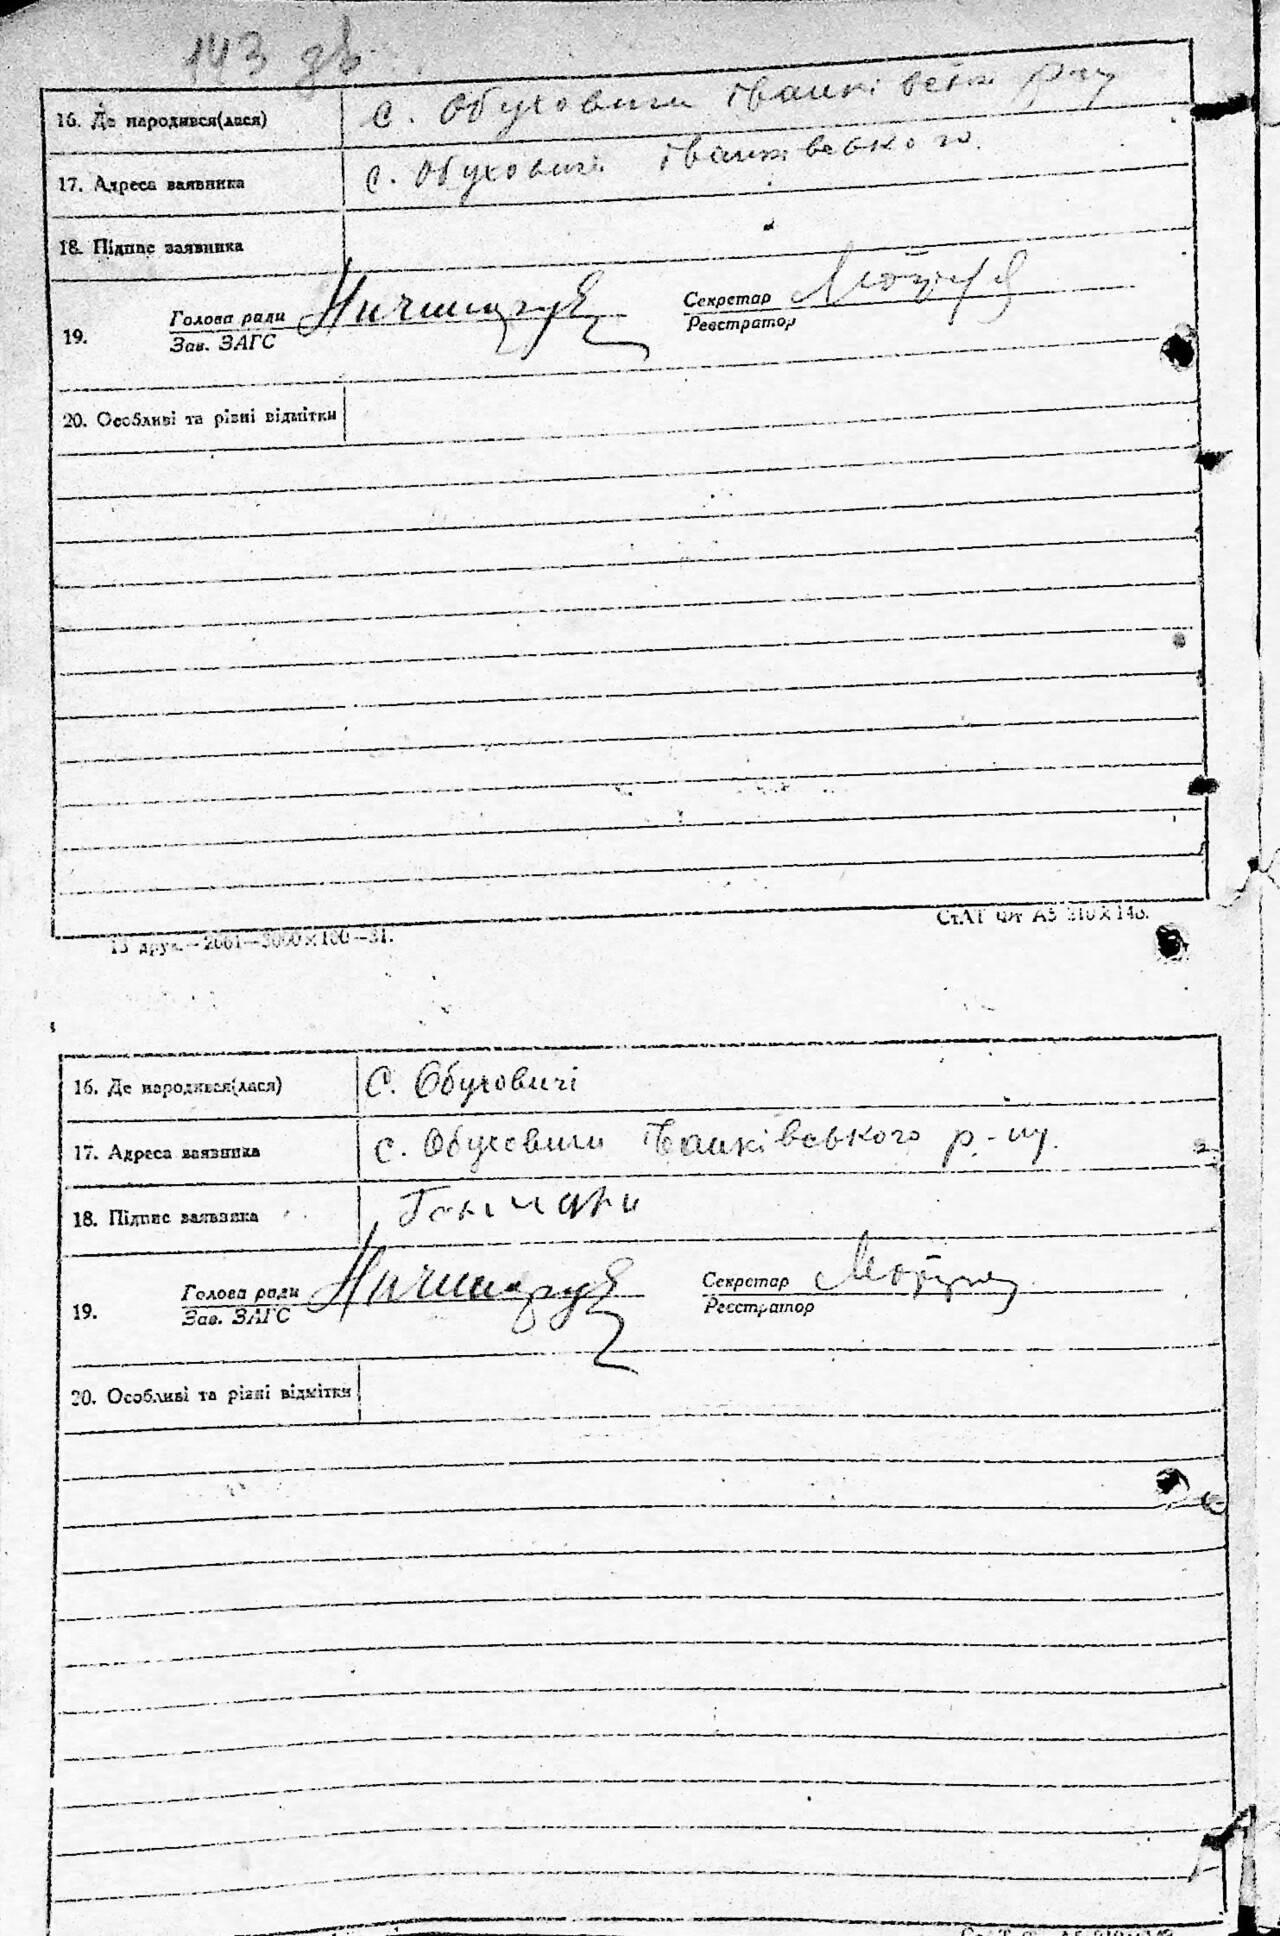 143 зв
16. Де народився(лася) с. Обуховичи Іванківськ р-ну
17. Адреса заявника с. Обуховичі Іванківського
18. Підпис заявника
19. Голова ради Секретар
Зав. ЗАГС Реєстратор
20. Особливі та різні відмітки
13 друк.—2061—3000×100—31.
СтАТ Фт А5 210×148.
16. Де народився(лася) с. Обуховичі
17. Адреса заявника с. Обуховичи Іванківського р-ну.
18. Підпис заявника Гончари
19. Голова ради Секретар
Зав. ЗАГС Реєстратор
20. Особливі та різні відмітки